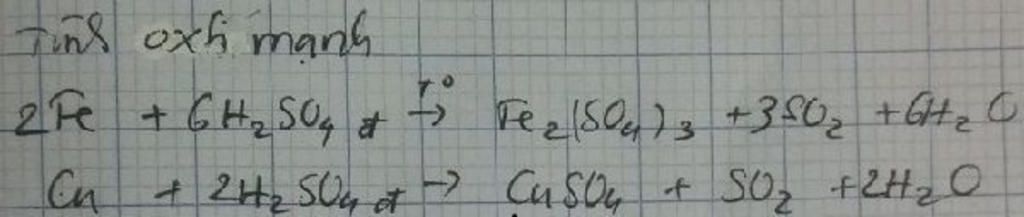 Tính oxh mạnh
2Fe + 6H₂SO₄ đ →(T°) Fe₂(SO₄)₃ + 3SO₂ + 6H₂O
Cu + 2H₂SO₄ đ → CuSO₄ + SO₂ + 2H₂O